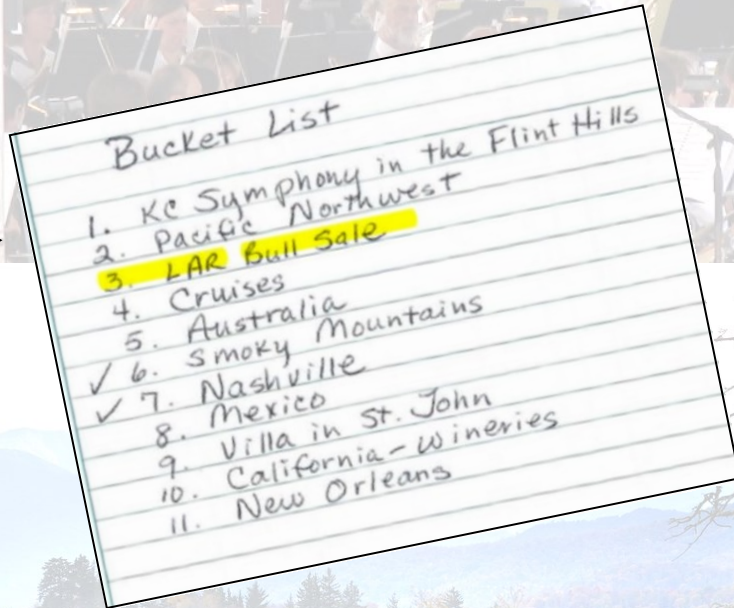 Bucket List
1. KC Symphony in the Flint Hills
2. Pacific Northwest
3. LAR Bull Sale
4. Cruises
5. Australia
✓ 6. Smoky Mountains
✓ 7. Nashville
8. Mexico
9. Villa in St. John
10. California - Wineries
11. New Orleans